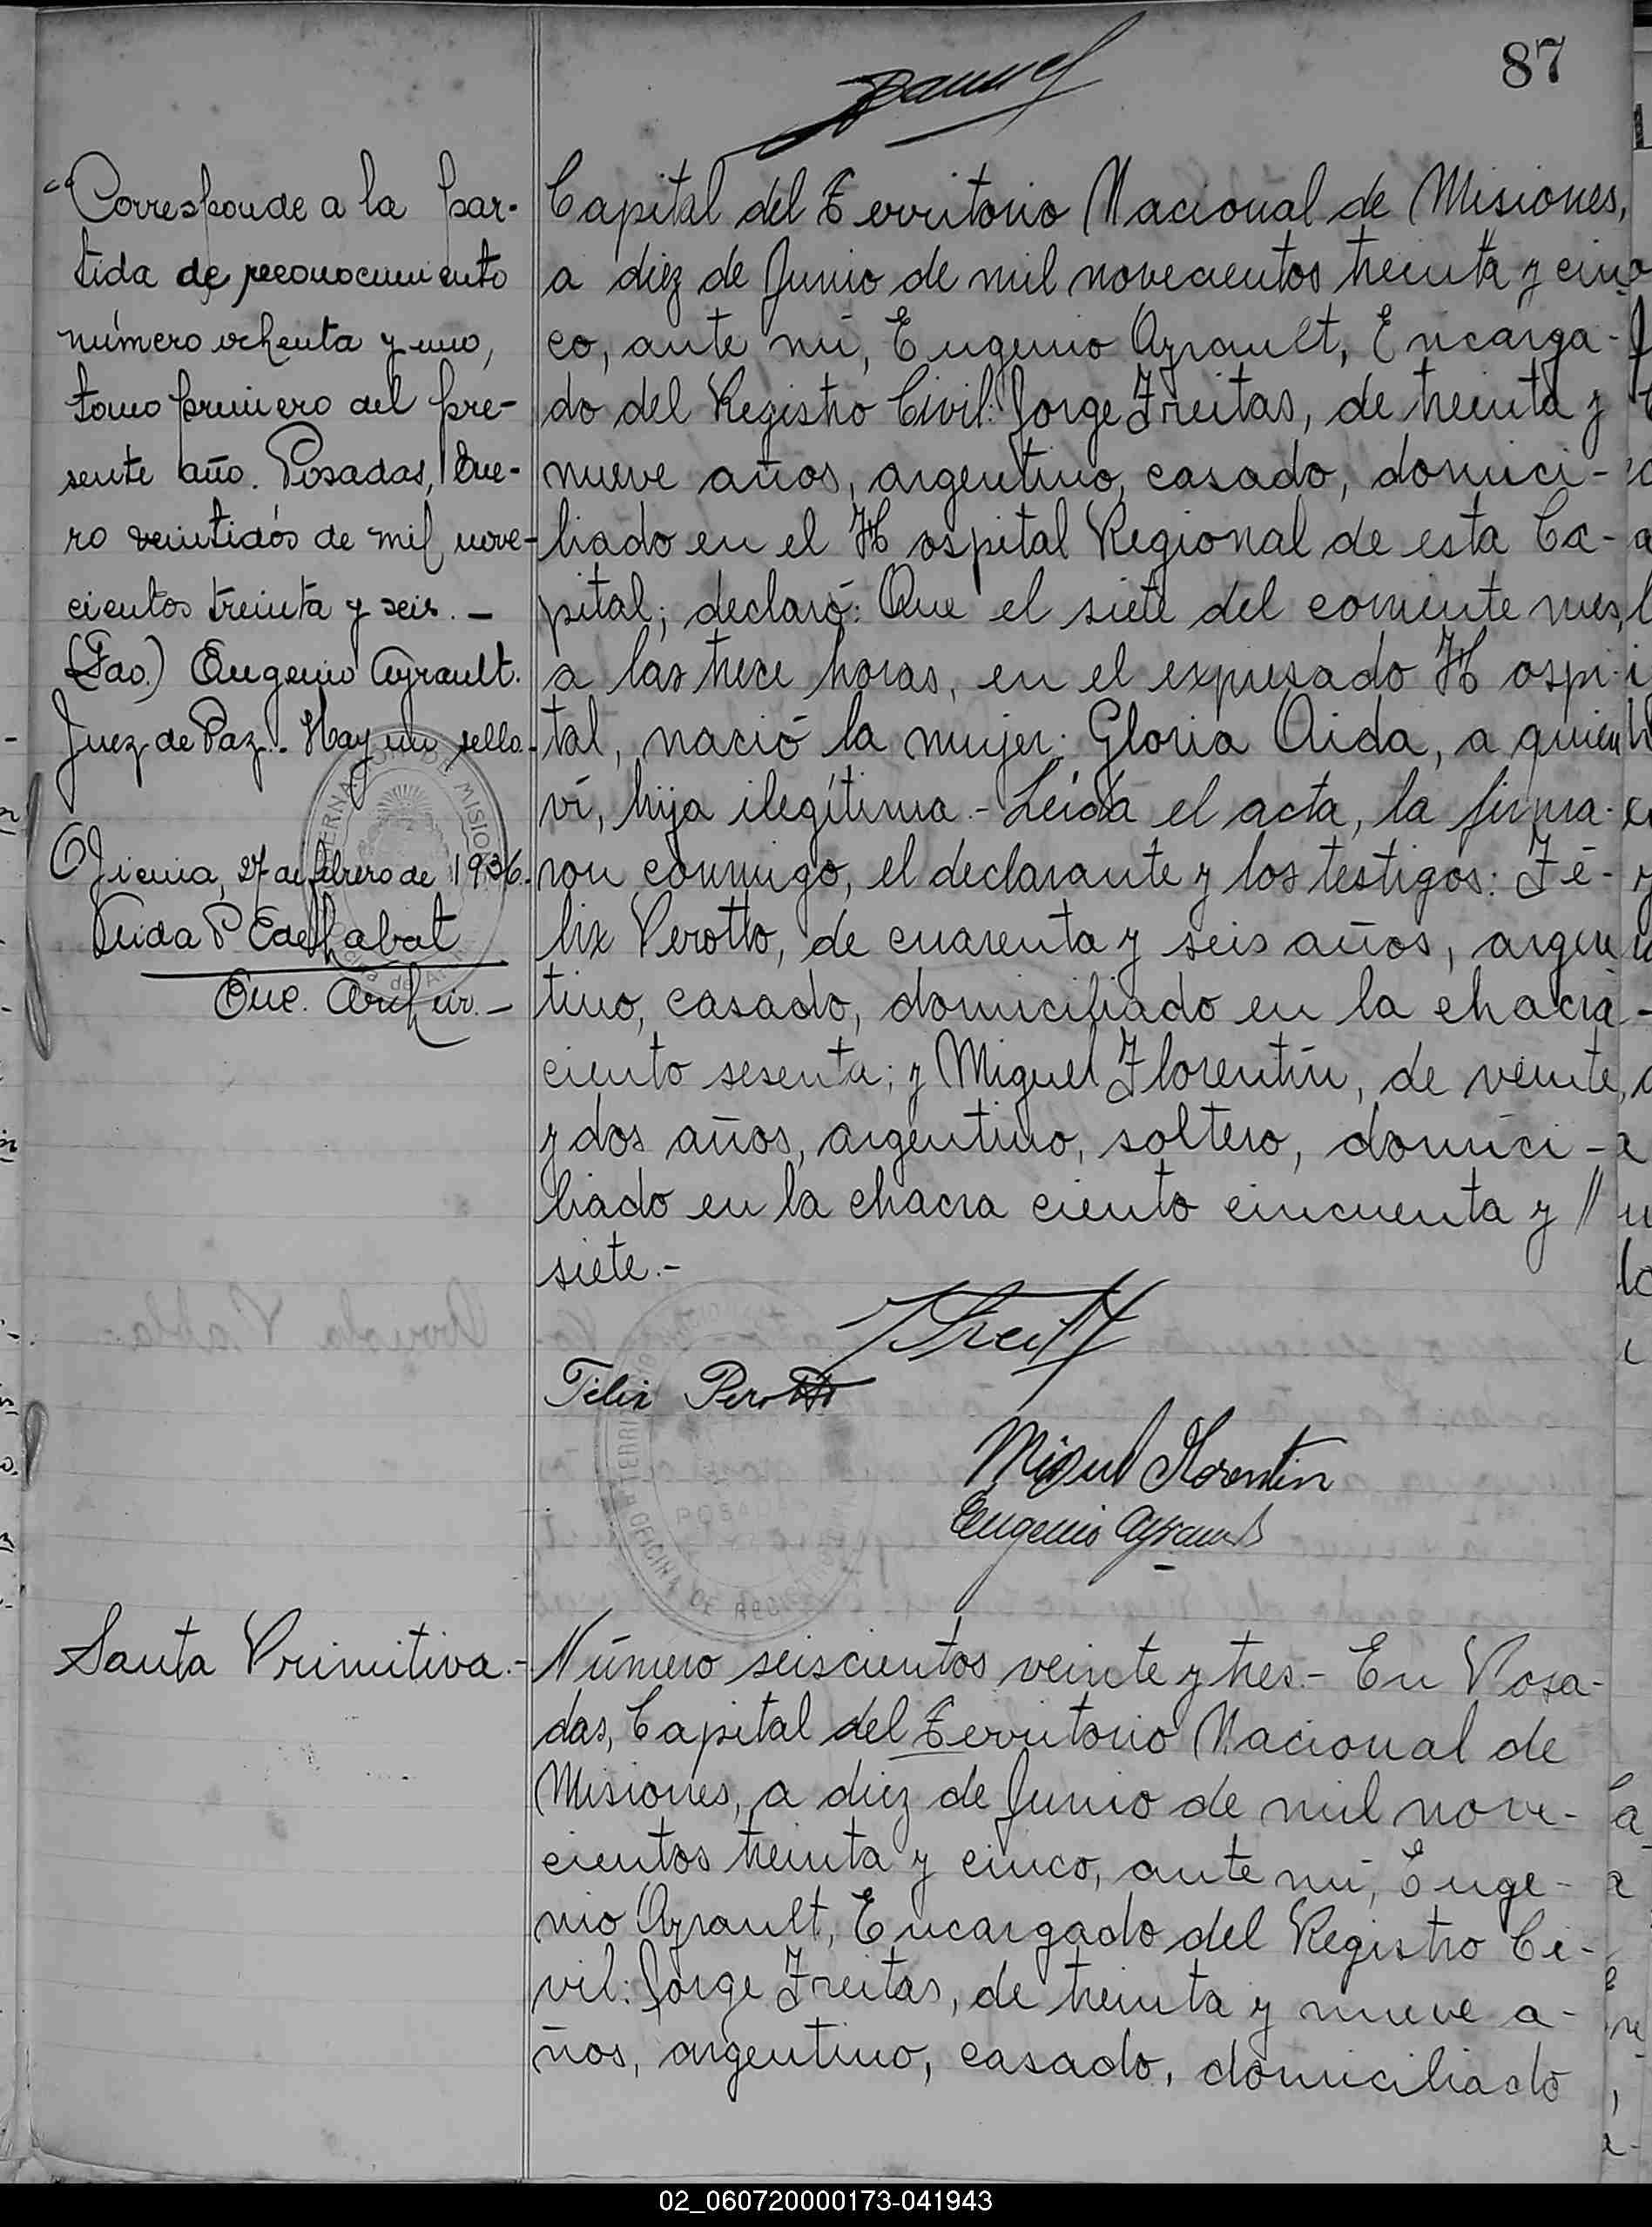 87
"Corresponde a la par-
tida de reconocimiento
número ochenta y uno,
tomo primero del pre-
sente año. Posadas, Ene-
ro veintidós de mil nove-
cientos treinta y seis. -
(Fdo.) Eugenio Ayrault.
Juez de Paz. - Hay un sello. -
Oficina, 27 de febrero de 1936.
Enc. Archiv. -
Capital del Territorio Nacional de Misiones,
a diez de Junio de mil novecientos treinta y cin-
co, ante mi, Eugenio Ayrault, Encarga-
do del Registro Civil: Jorge Freitas, de treinta y
nueve años, argentino, casado, domici-
liado en el Hospital Regional de esta Ca-
pital; declaró: Que el siete del corriente mes,
a las trece horas, en el expresado Hospi-
tal, nació la mujer: Gloria Aida, a quien
ví, hija ilegítima. - Leída el acta, la firma-
ron conmigo, el declarante y los testigos: Fé-
lix Perotto, de cuarenta y seis años, argen
tino, casado, domiciliado en la chacra
ciento sesenta; y Miguel Florentín, de veinte
y dos años, argentino, soltero, domici-
liado en la chacra ciento cincuenta y //
siete. -
Felix Perotto
Miguel Florentin
Eugenio Ayrault
POSADAS
OFICINA DE REGISTRO
Santa Primitiva. -
Número seiscientos veinte y tres. - En Posa-
das, Capital del Territorio Nacional de
Misiones, a diez de Junio de mil nove-
cientos treinta y cinco, ante mi, Euge-
nio Ayrault, Encargado del Registro Ci-
vil: Jorge Freitas, de treinta y nueve a-
ños, argentino, casado, domiciliado
02_060720000173-041943